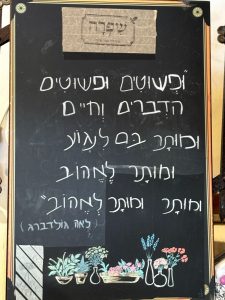 שיפרה
"ופשוטים ופשוטים
הדברים וחיים
ומותר בם לנגוע
ומותר לאהוב
ומותר ומותר לאהוב"
(לאה גולדברג)